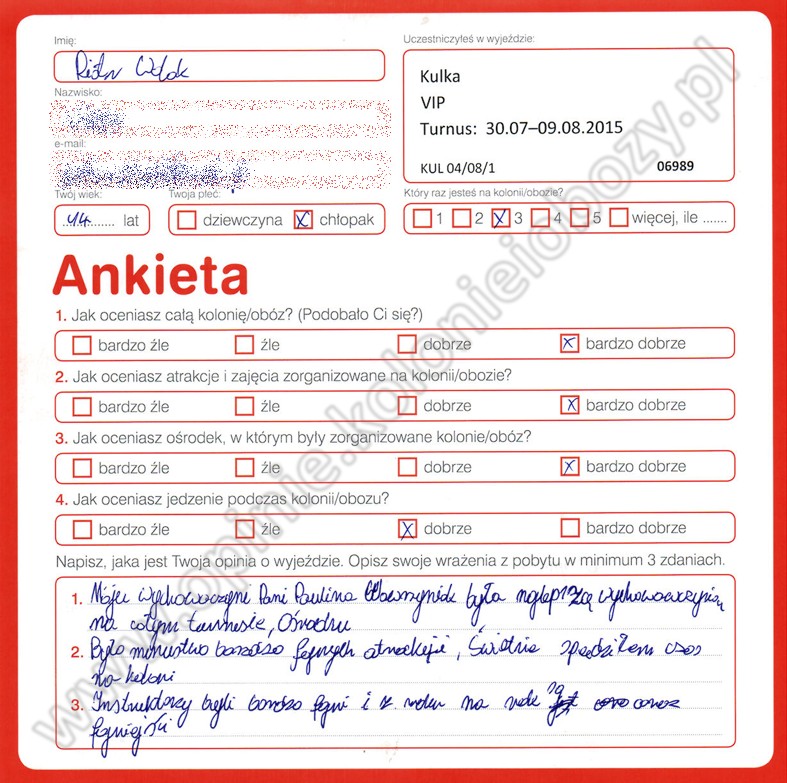 Imię:
Uczestniczyłeś w wyjeździe:
Kulka
VIP
Turnus: 30.07–09.08.2015
KUL 04/08/1 06989
Nazwisko:
e-mail:
Twój wiek: Twoja płeć: Który raz jesteś na kolonii/obozie?
14 lat dziewczyna X chłopak 1 2 X 3 4 5 więcej, ile .......
Ankieta
1. Jak oceniasz całą kolonię/obóz? (Podobało Ci się?)
bardzo źle źle dobrze X bardzo dobrze
2. Jak oceniasz atrakcje i zajęcia zorganizowane na kolonii/obozie?
bardzo źle źle dobrze X bardzo dobrze
3. Jak oceniasz ośrodek, w którym były zorganizowane kolonie/obóz?
bardzo źle źle dobrze X bardzo dobrze
4. Jak oceniasz jedzenie podczas kolonii/obozu?
bardzo źle źle X dobrze bardzo dobrze
Napisz, jaka jest Twoja opinia o wyjeździe. Opisz swoje wrażenia z pobytu w minimum 3 zdaniach.
1. Moja wychowawczyni Pani Paulina była najlepszą wychowawczynią
na całym turnusie, Ośrodku
2. Było mnóstwo bardzo fajnych atrakcji, Świetnie spędziłem czas
na koloni
3. Instruktorzy byli bardzo fajni i z roku na rok są coraz
fajniejsi
www.opinie.kolonieiobozy.pl